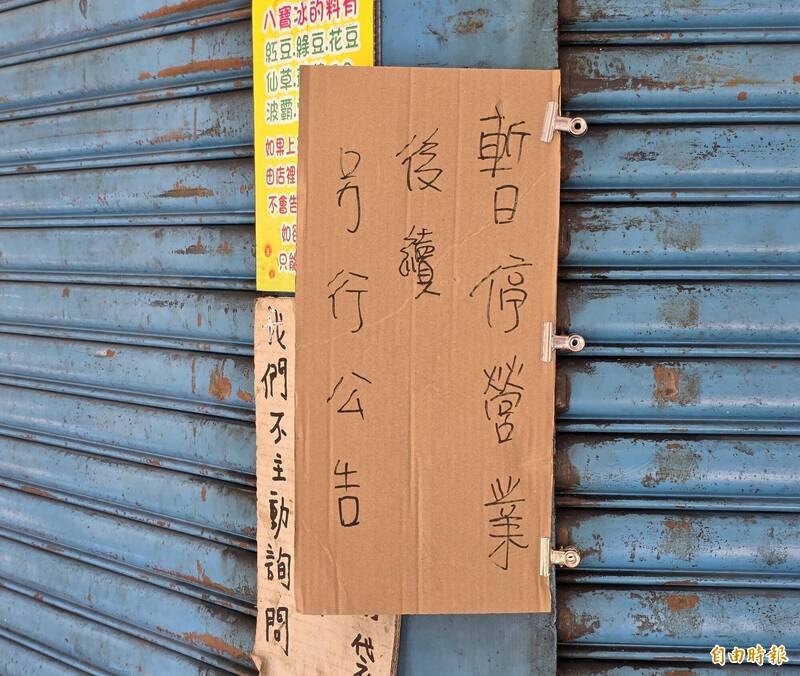 八寶冰的料有
紅豆.綠豆.花豆
仙草.
波霸.
如果上
由店裡
不會告
如
只能
暫停營業
後續
另行公告
我們不主動詢問
代
自由時報